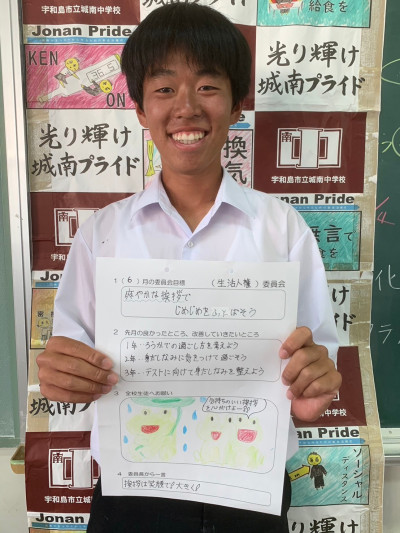 Jonan Pride
給食を
KEN
ON
光り輝け
城南プライド
光り輝け
城南プライド
換気
南
中
宇和島市立城南中学校
無言で
1（6）月の委員会目標（生活人権）委員会
爽やかな挨拶で
じめじめをふっとばそう
2 先月の良かったところ、改善していきたいところ
1年・ろうかでの過ごし方を考えよう
2年・身だしなみに気をつけて過ごそう
3年・テストに向けて身だしなみを整えよう
3 全校生徒へお願い
気持ちのいい挨拶を
4 委員長から一言
挨拶は笑顔で大きく!
宇和島市立城南中学校
ソーシャル
ディスタンス
Jonan Pride
Jonan Pride